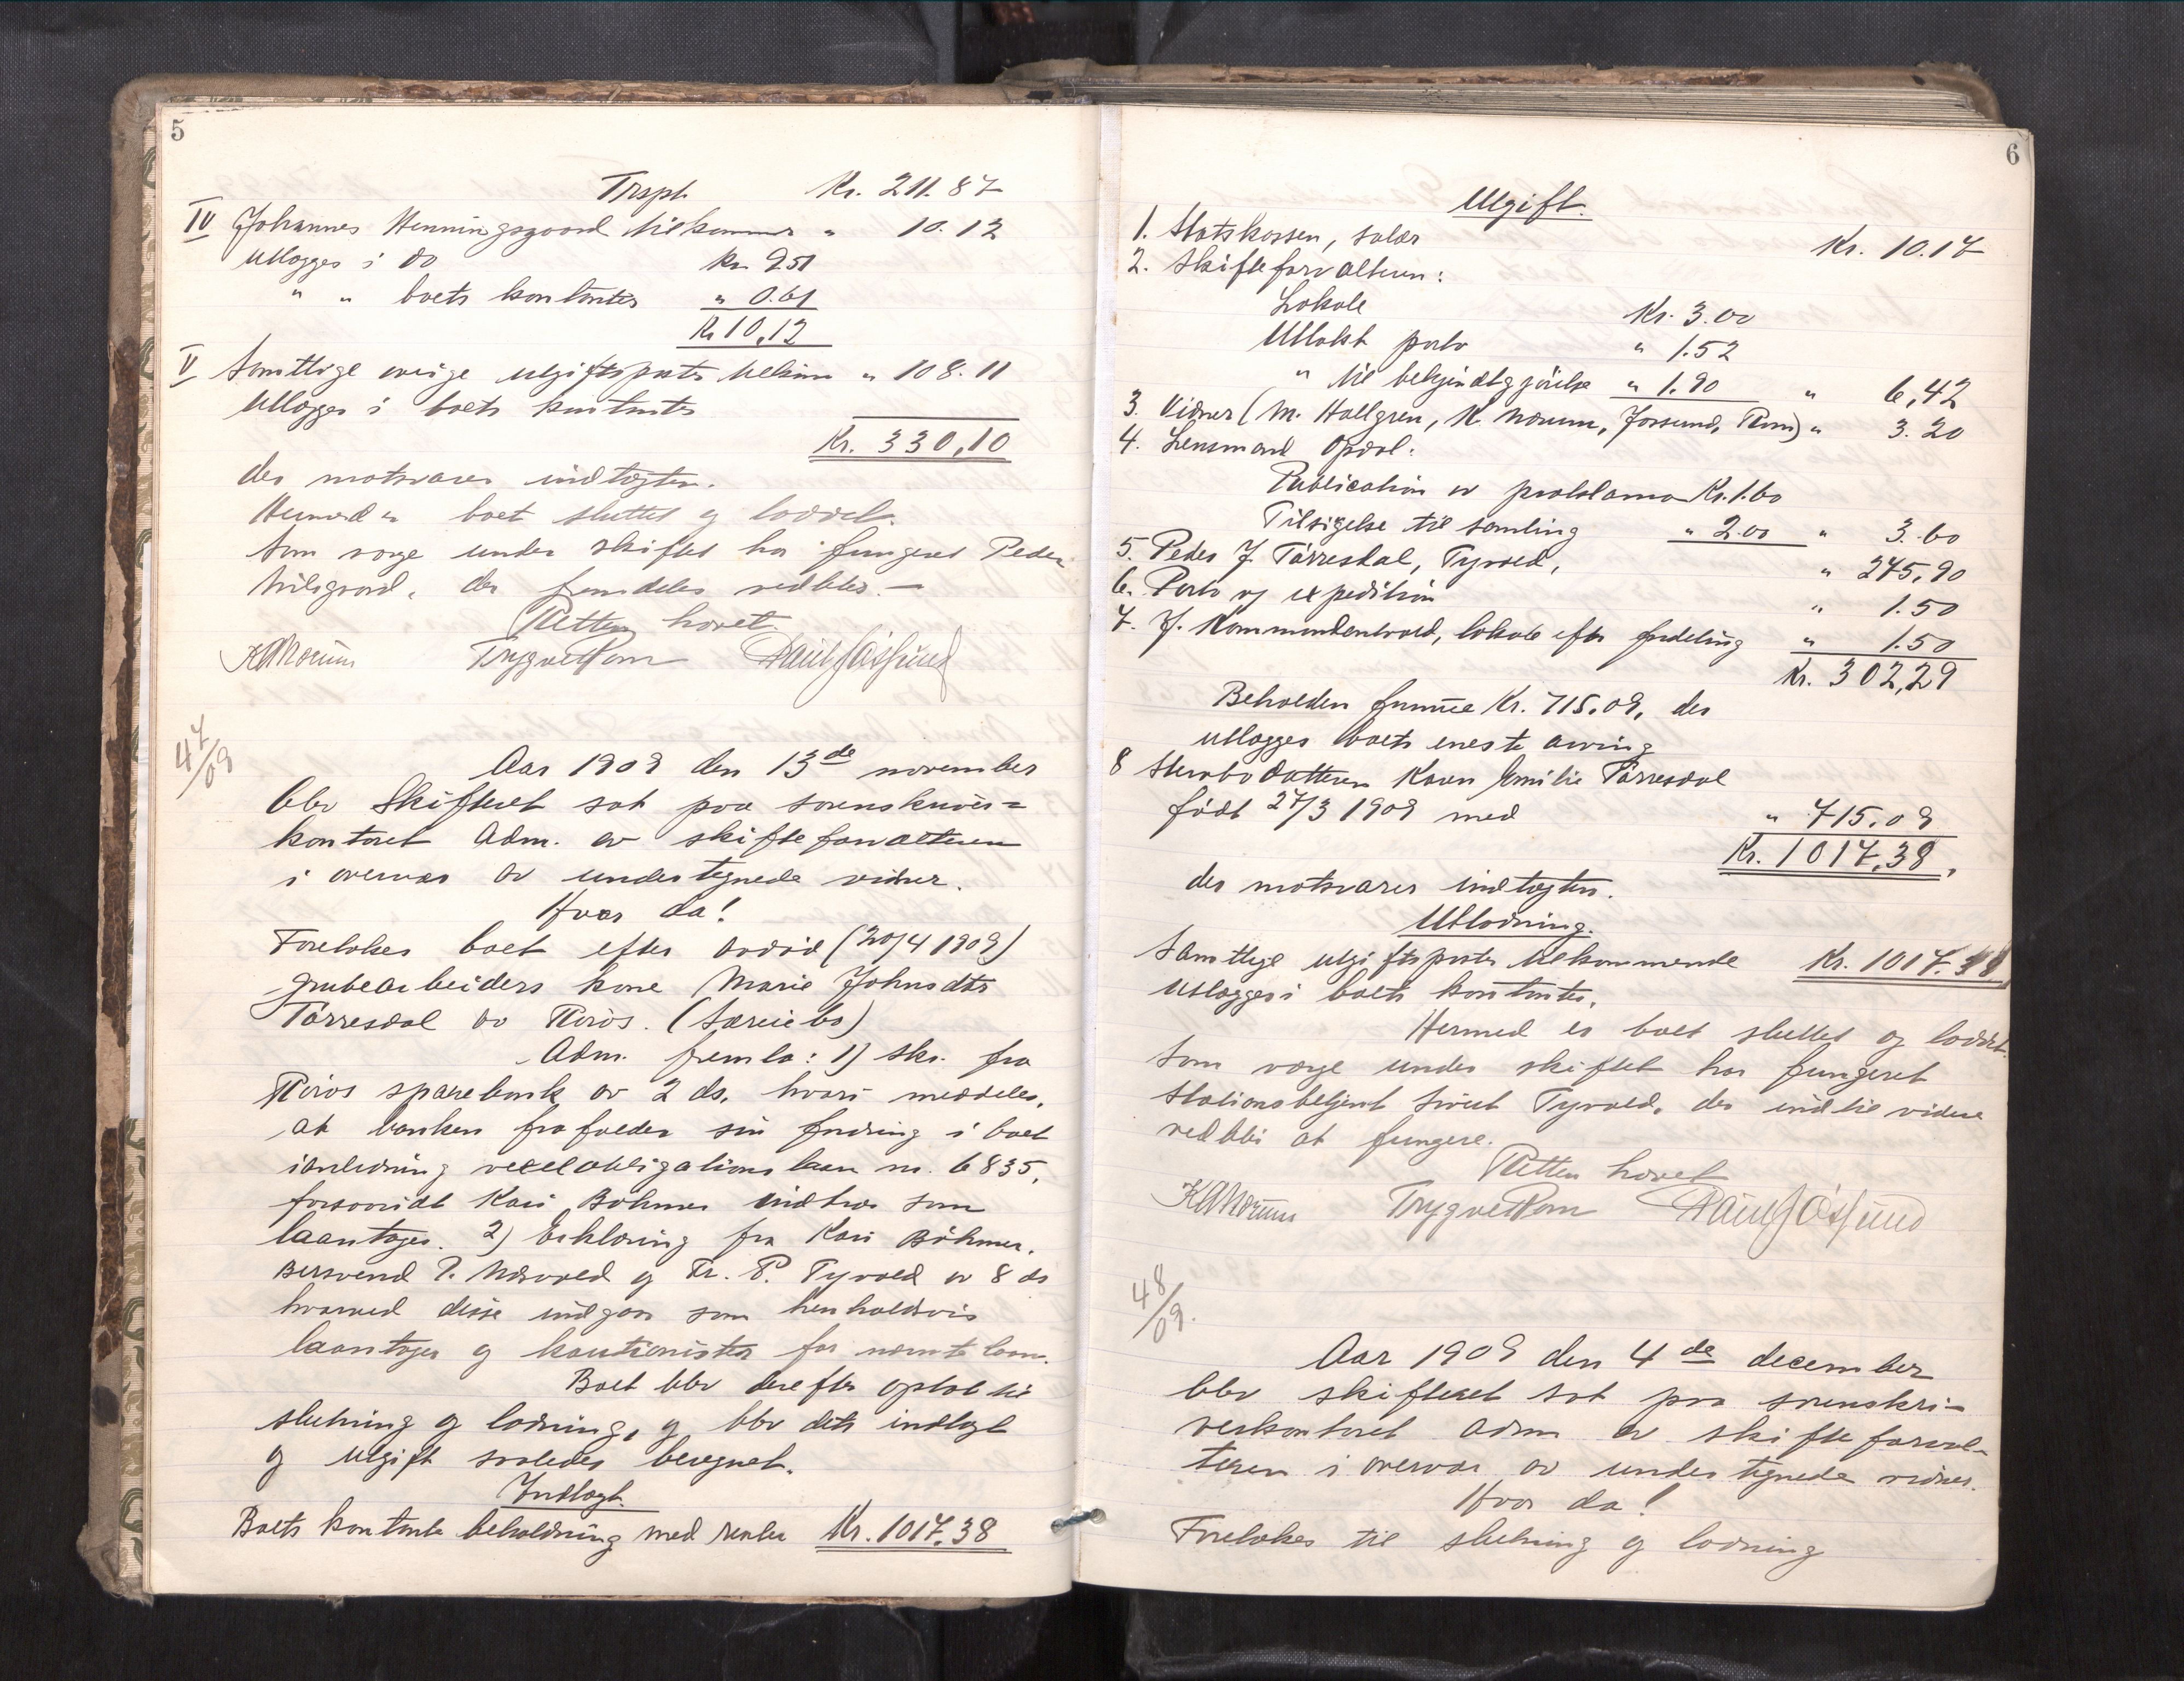 5
Trspt. Kr. 211.87
IV Johannes Henningsgaard tilkommer " 10.12
Utlægges i do Kr. 9.51
" " boets kontanter " 0.61
Kr 10,12
V Samtlige øvrige utgiftsposter tilkom " 108.11
Utlægges i boets kontanter
Kr. 330,10
der motsvarer indtægten.
Hermed er boet sluttet og loddet.
Som verge under skiftet har fungeret Peder
Nilsgaard, der fremdeles vedblir. —
Retten hævet.
KANørum Trygve Rom Paul Jøssund
47/09
Aar 1909 den 13de november
blev Skifteret sat paa sorenskriver=
kontoret Adm. av skifteforvalteren
i overvær av undertegnede vidner.
Hvor da!
Foretokes boet efter avdød (20/4 1909)
grubearbeiders kone Marie Johnsdtr
Tørresdal av Røros. (Særeiebo)
Adm. fremla: 1) skr. fra
Røros sparebank av 2 ds. hvori meddeles,
at banken frafalder sin fordring i boet
i anledning vexelobligationslaan nr. 6835,
forsaavidt Kari Böhmer indtrær som
laantager. 2) Erklæring fra Kari Böhmer,
Bersvend P. Nævvold og Fr. P. Tyvold av 8 ds
hvorved disse indgaar som henholdsvis
laantager og kautionister for nævnte laan.
Boet blev derefter optat til
slutning og lodning, og blev dets indtægt
og utgift saaledes beregnet.
Indtægt.
Boets kontante beholdning med renter Kr. 1017.38
6
Utgift.
1. Statskassen, salær Kr. 10.17
2. Skifteforvalteren:
Lokale Kr. 3.00
Utlakt porto " 1.52
" til bekjendtgjørelse " 1.90 " 6,42
3. Vidner (M. Hallgren, K. Nørum, Jossund, Rom) " 3.20
4. Lensmand Opdal:
Publication av proklama Kr. 1.60
Tilsigelse til samling " 2.00 " 3.60
5. Peder J. Tørresdal, Tyvold, " 275,90
6. Porto og expedition " 1.50
7. J. Kommandantvold, lokale efter fordeling " 1.50
Kr. 302,29
Beholden formue Kr. 715.09, der
utlægges boets eneste arving
8 Sterbo datteren Karen Emilie Tørresdal
født 27/3 1909 med " 715.09
Kr. 1017,38,
der motsvarer indtægten.
Utlodning.
Samtlige utgiftsposter tilkommende Kr. 1017.38
Utlægges i boets kontanter.
Hermed er boet sluttet og loddet.
Som verge under skiftet har fungeret
Stationsbetjent Sivert Tyvold, der indtil videre
vedblir at fungere.
Retten hævet
KANørum Trygve Rom Paul Jøssund
48/09.
Aar 1909 den 4de december
blev skifteret sat paa sorenskri-
verkontoret adm av skifteforval-
teren i overvær av undertegnede vidner.
Hvor da!
Foretokes til slutning og lodning